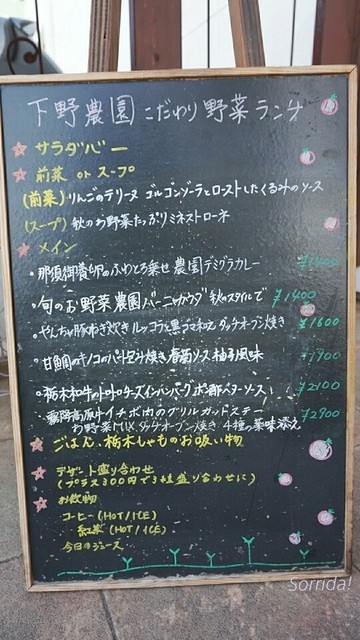 下野農園こだわり野菜ランチ
☆ サラダバー
☆ 前菜 or スープ
(前菜) りんごのテリーヌ ゴルゴンゾーラとローストしたくるみのソース
(スープ) 秋のお野菜たっぷりミネストローネ
☆ メイン
・那須御養卵のふわとろ乗せ 農園デミグラカレー ¥1400
・旬のお野菜農園バーニャカウダ 秋のスタイルで ¥1400
・やんちゃ豚 ルッコラと黒ゴマ和え ダッチオーブン焼き ¥1600
・甘鯛のキノコのパート包み焼き 春菊ソース 柚子風味 ¥1900
・栃木和牛のトロトロチーズインハンバーグ ポン酢バターソース ¥2100
・霧降高原牛イチボ肉のグリルガッドステー ¥2900
お野菜MIX ダッチオーブン焼き 4種の薬味添え
☆ ごはん・栃木しゃものお吸い物
☆ デザート盛り合わせ
(プラス300円で3種盛り合わせに)
☆ お飲物
コーヒー (HOT/ICE)
紅茶 (HOT/ICE)
今日のジュース
Sorrida!